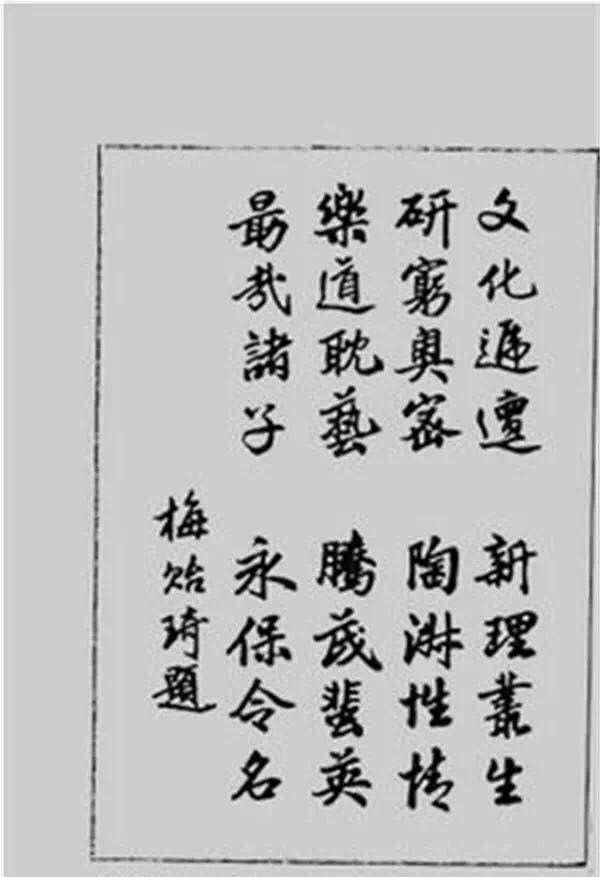 文化遞邅 新理叢生
研窮奧密 陶淑性情
樂道耽藝 騰茂蜚英
勗哉諸子 永保令名
梅貽琦題